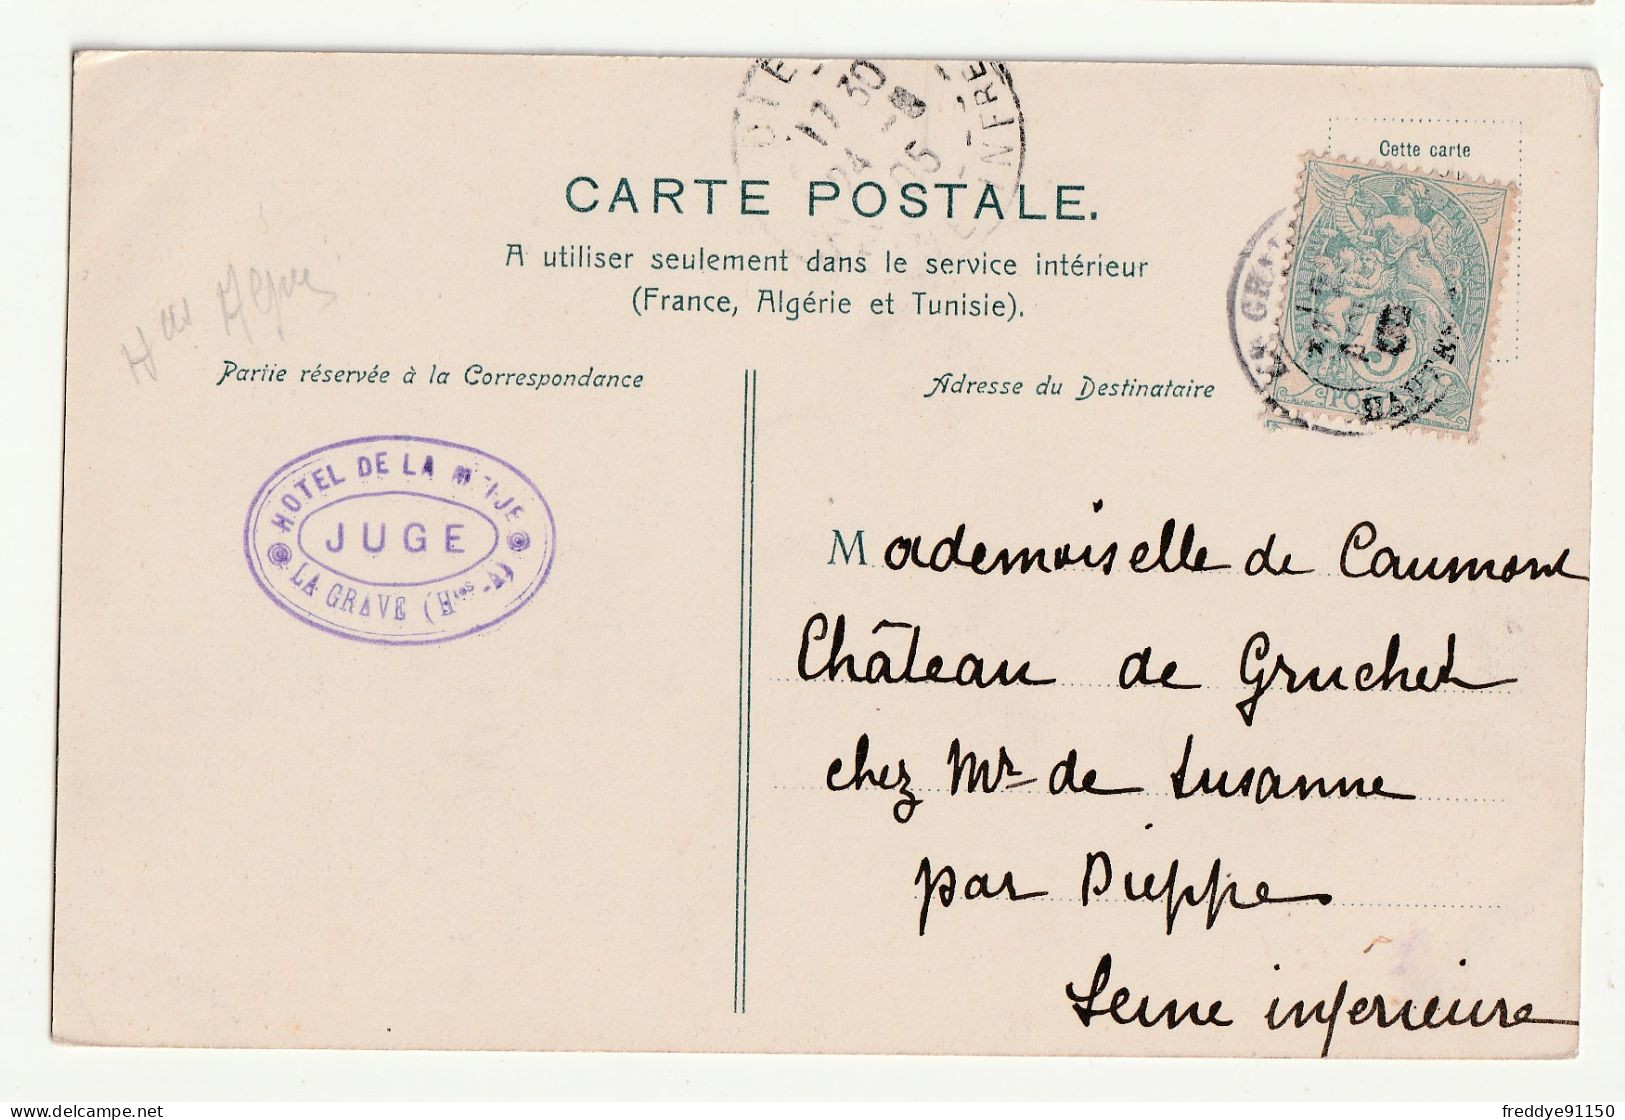 Cette carte
CARTE POSTALE.
A utiliser seulement dans le service intérieur
(France, Algérie et Tunisie).
Partie réservée à la Correspondance
Adresse du Destinataire
17 30
24 -8
05
HOTEL DE LA MEIJE
JUGE
LA GRAVE (Htes-A)
Mademoiselle de Caumont
Château de Gruchet
chez Mr de Susanne
par Dieppe
Seine inférieure
delcampe.net
freddye91150